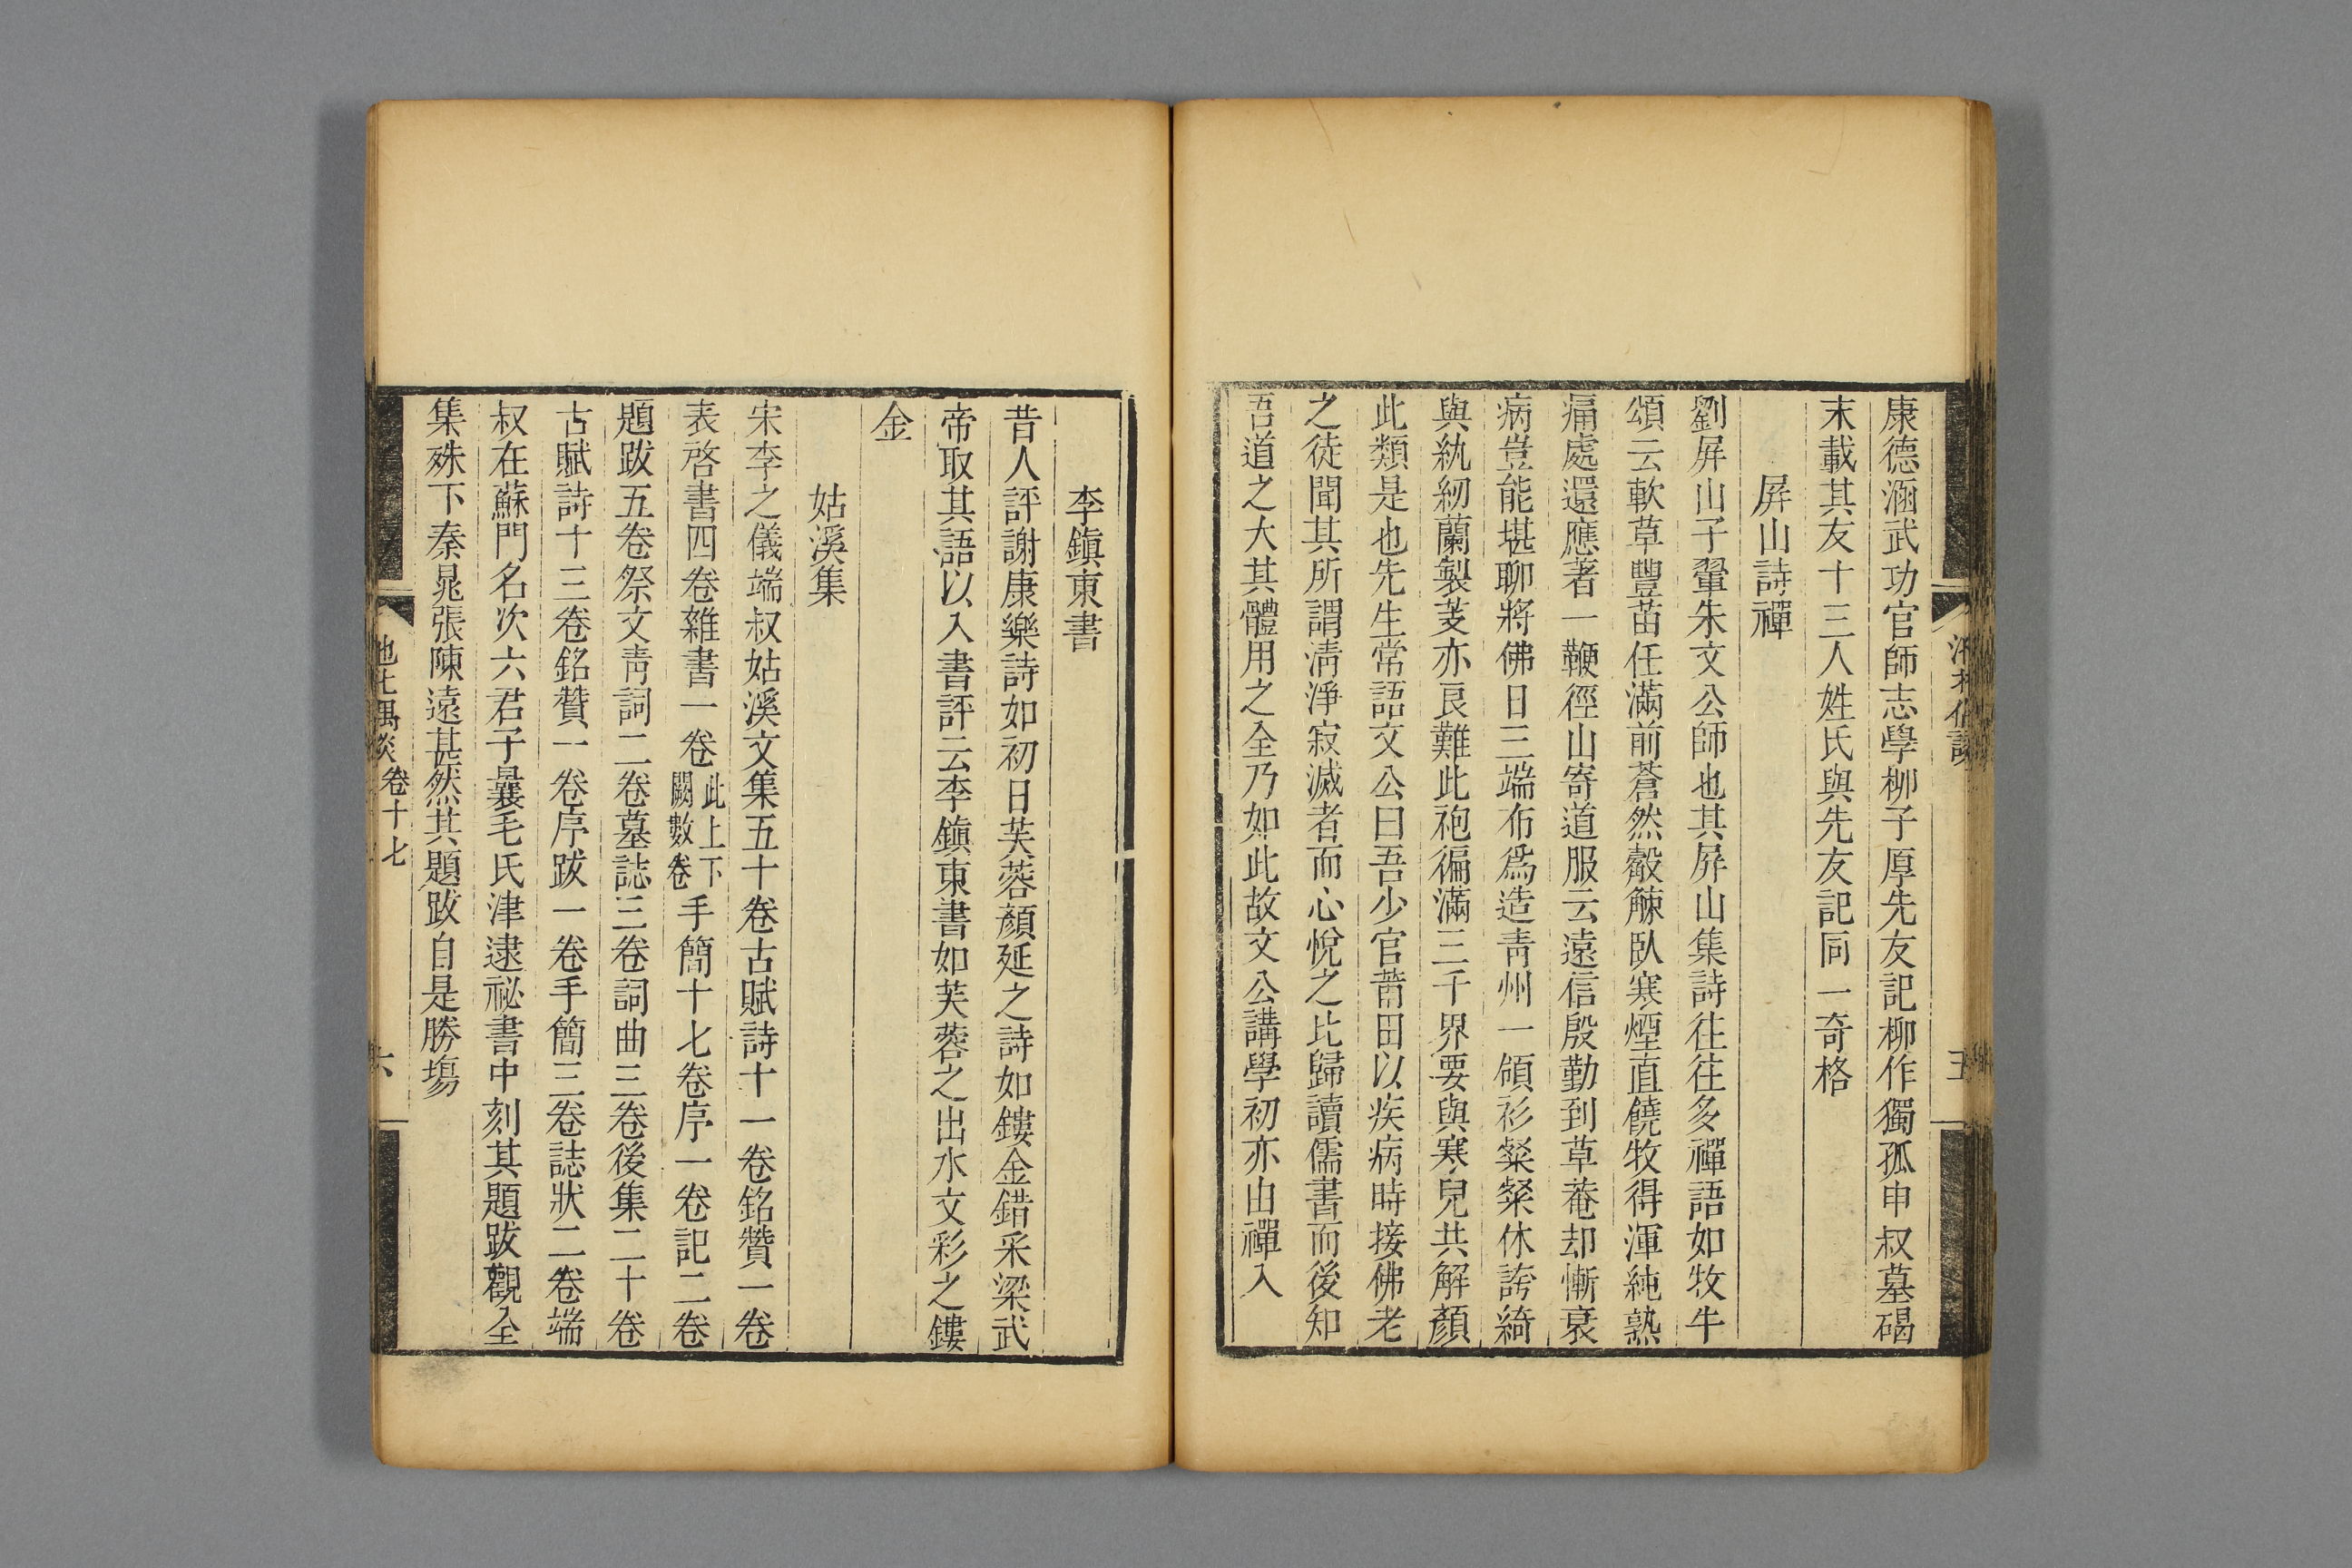 康德涵武功官師志學柳子厚先友記柳作獨孤申叔墓碣
末載其友十三人姓氏與先友記同一奇格
屏山詩禪
劉屏山子翬朱文公師也其屏山集詩往往多禪語如牧牛
頌云軟草豐苗任滿前蒼然觳觫臥寒煙直饒牧得渾純熟
痛處還應著一鞭徑山寄道服云遠信殷勤到草菴却慚衰
病豈能堪聊將佛日三端布爲造青州一領衫粲粲休誇綺
與紈紉蘭製芰亦良難此袍徧滿三千界要與寒兒共解顏
此類是也先生常語文公曰吾少官莆田以疾病時接佛老
之徒聞其所謂淸淨寂滅者而心悅之比歸讀儒書而後知
吾道之大其體用之全乃如此故文公講學初亦由禪入
五
李鎮東書
昔人評謝康樂詩如初日芙蓉顏延之詩如鏤金錯采梁武
帝取其語以入書評云李鎮東書如芙蓉之出水文彩之鏤
金
姑溪集
宋李之儀端叔姑溪文集五十卷古賦詩十一卷銘贊一卷
表啓書四卷雜書一卷此上下闕數卷手簡十七卷序一卷記二卷
題跋五卷祭文青詞二卷墓誌三卷詞曲三卷後集二十卷
古賦詩十三卷銘贊一卷序跋一卷手簡三卷誌狀二卷端
叔在蘇門名次六君子曩毛氏津逮祕書中刻其題跋觀全
集殊下秦晁張陳遠甚然其題跋自是勝場
池北偶談 卷十七 六